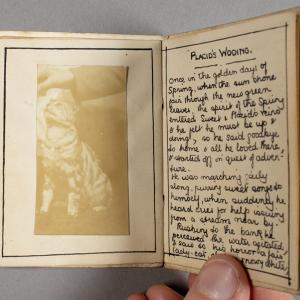 PLACID'S WOOING.
Once in the golden days of
Spring, when the sun shone
fair through the new green
leaves, the spirit of the Spring
entered Sweet & Placid's veins
& he felt he must be up &
doing, so he said goodbye
to home & all he loved there,
& started off in quest of adven-
ture.
He was marching gaily
along, purring sweet songs to
himself, when suddenly he
heard cries for help issuing
from a stream near by.
Rushing to the bank he
perceived the water agitated
& saw to his horror a fair
lady-cat, snowy white,